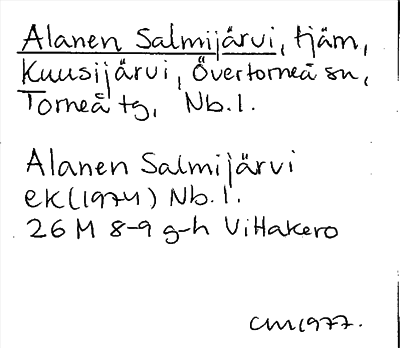 Alanen Salmijärvi, tjäm,
Kuusijärvi, Övertorneå sn,
Torneå tg, Nb. l.
Alanen Salmijärvi
ek (1974) Nb. l.
26 M 8-9 g-h Vittakero
CM 1977.